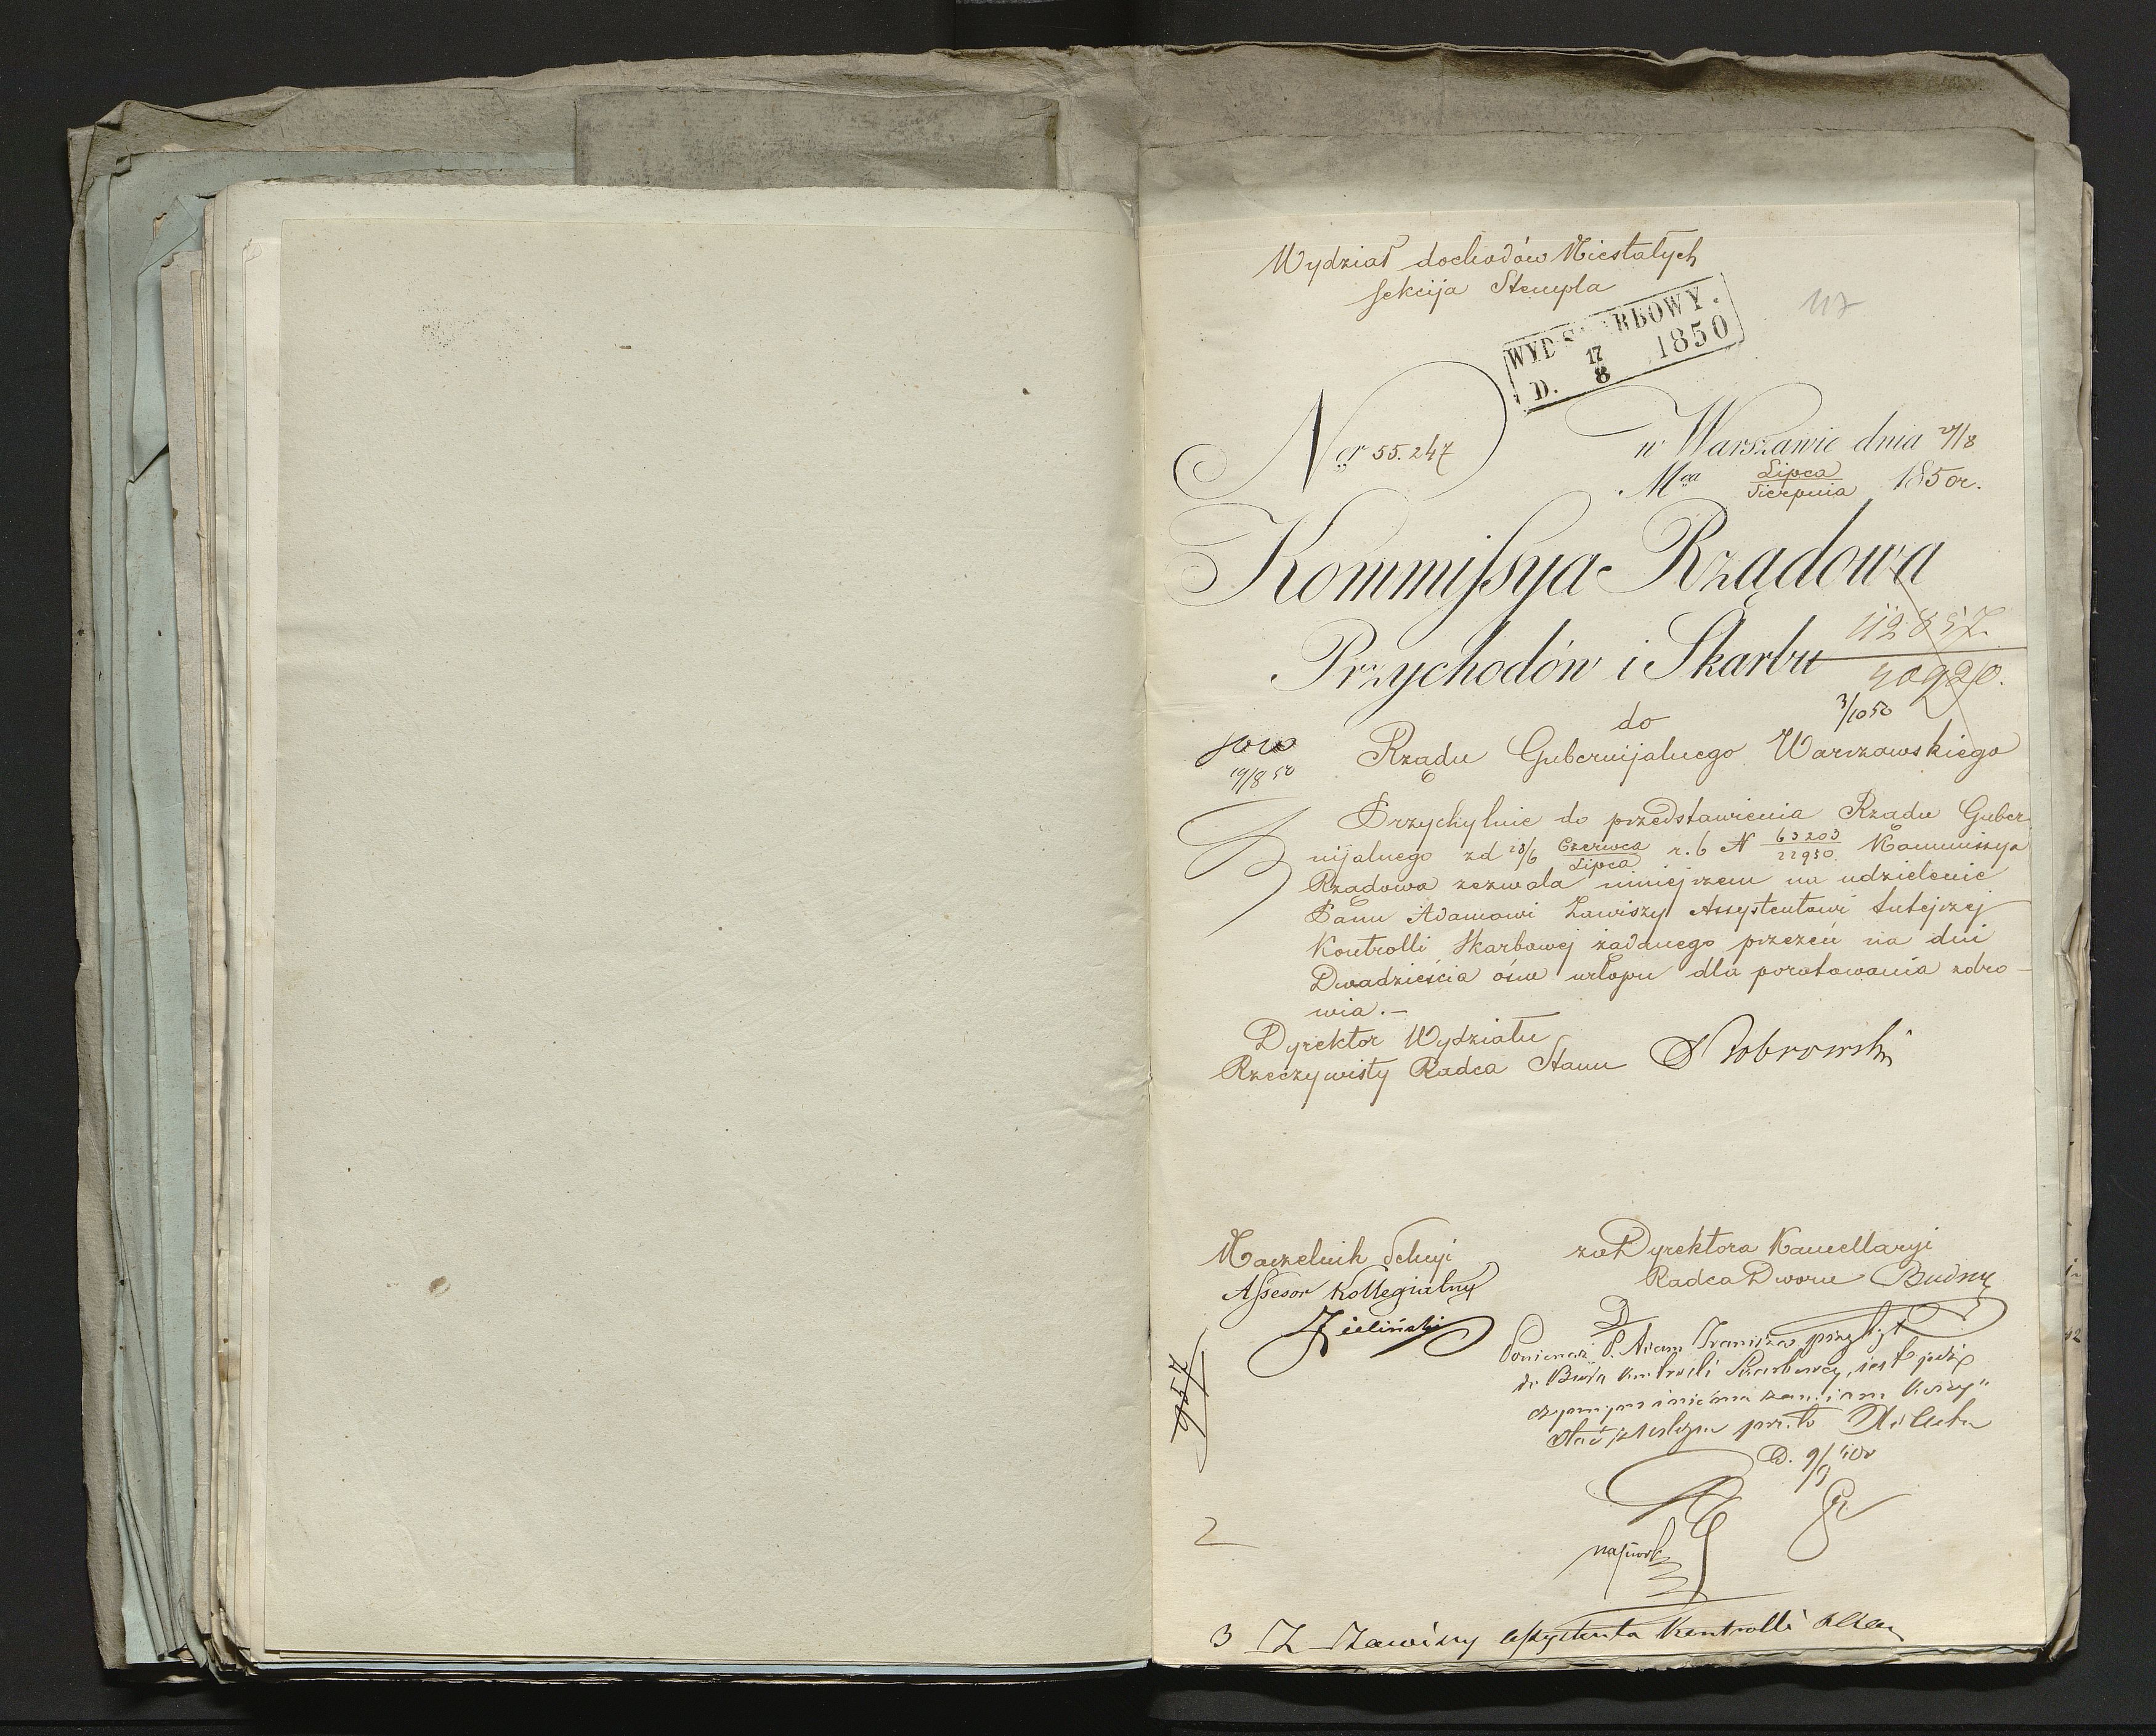 Wydział dochodów Niestałych
Sekcija Stempla
117
WYD S RBOWY.
D. 17/8 1850
Ner 55.247
w Warszawie dnia 27/8
Mca Lipca/Sierpnia 1850r.
Kommissya Rządowa
Przychodów i Skarbu
112857
40920.
3/10 50
do
19/8 50
Rządu Gubernijalnego Warszawskiego
Przychylnie do przedstawienia Rządu Guber
nijalnego zd 28/6 Czerwca/Lipca r. b N 63203/22950. Kommissya
Rządowa zezwala niniejszem na udzielenie
Panu Adamowi Zawiszy Assystentowi tutejszej
Kontrolli Skarbowej żądanego przezeń na dni
Dwadzieścia ośm urlopu dla poratowania zdro-
wia.-
Dyrektor Wydziału
Rzeczywisty Radca Stanu
Naczelnik Sekcyi
Assesor Kollegialny
Zieliński
za Dyrektora Kancellaryi
Radca Dworu Budny
Ponieważ P. Adam Zawisza przybył
do Biura Kontrolli Skarbowej, jest
957
2
3 Z Zawiszy assystenta Kontrolli